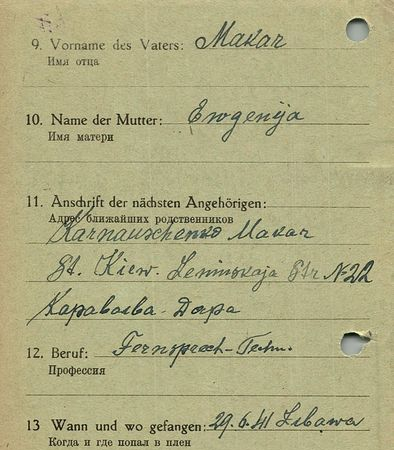 9. Vorname des Vaters: Makar
Имя отца
10. Name der Mutter: Ewgenija
Имя матери
11. Anschrift der nächsten Angehörigen:
Адрес ближайших родственников
Karnauschenko Makar
St. Kiew. Leninskaja Str N 22
Караваева-Дара
12. Beruf: Fernsprech-Techn.
Профессия
13 Wann und wo gefangen: 29.6.41 Libawa
Когда и где попал в плен